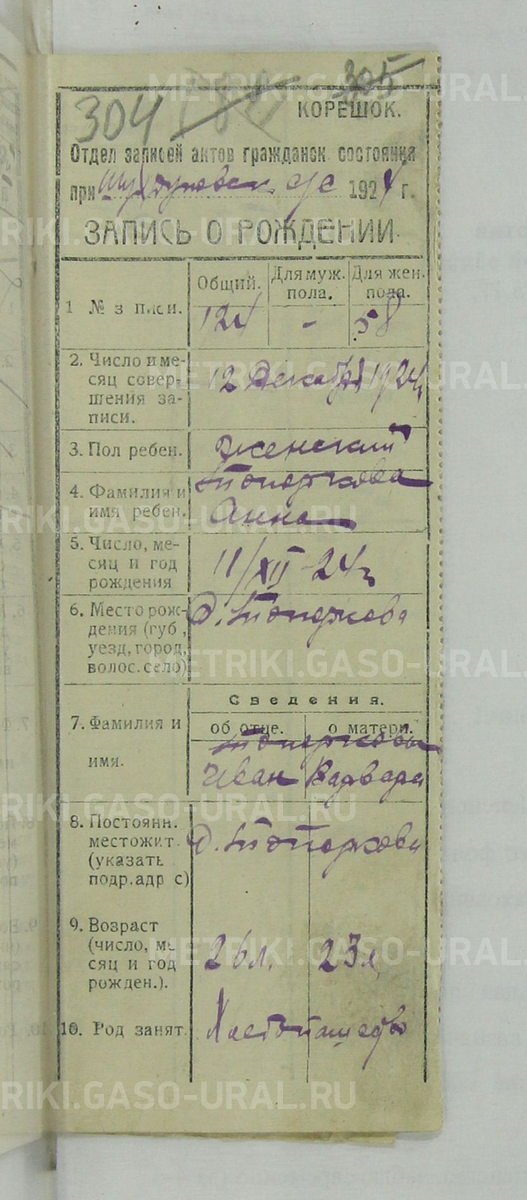 305
304
КОРЕШОК.
Отдел записей актов гражданск состояния
при с/с 1924 г.
ЗАПИСЬ О РОЖДЕНИИ.
Общий. Для муж. пола. Для жен. пола.
1 № з писи. 124 - 58
2. Число и ме-
сяц совер-
шения за-
писи.
12 Декабря 1924 г
3. Пол ребен. женский
4. Фамилия и
имя ребен.
Топоркова
Анна
5. Число, ме-
сяц и год
рождения
11/XII-24 г
6. Место рож-
дения (губ,
уезд, город,
волос. село)
д. Топоркова
Сведения.
об отце. о матери.
7. Фамилия и
имя.
Топорковы
Иван Варвара
8. Постоянн.
местожит.
(указать
подр. адр с)
д. Топоркова
9. Возраст
(число, ме
сяц и год
рожден.).
26 л. 23 л
10. Род занят. Хлебопашество
METRIKI.GASO-URAL.RU